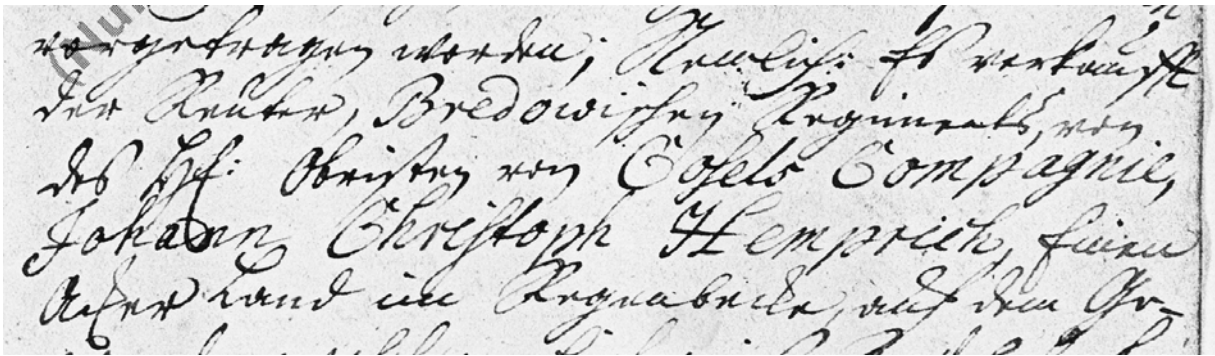 vorgetragen worden; Nemlich: Es verkaufft
der Reuter, Bredowischen Regiments, von
des H: Obristen von Cosels Compagnie,
Johann Christoph Hemprich, Einen
Acker Land im auf dem Ge-